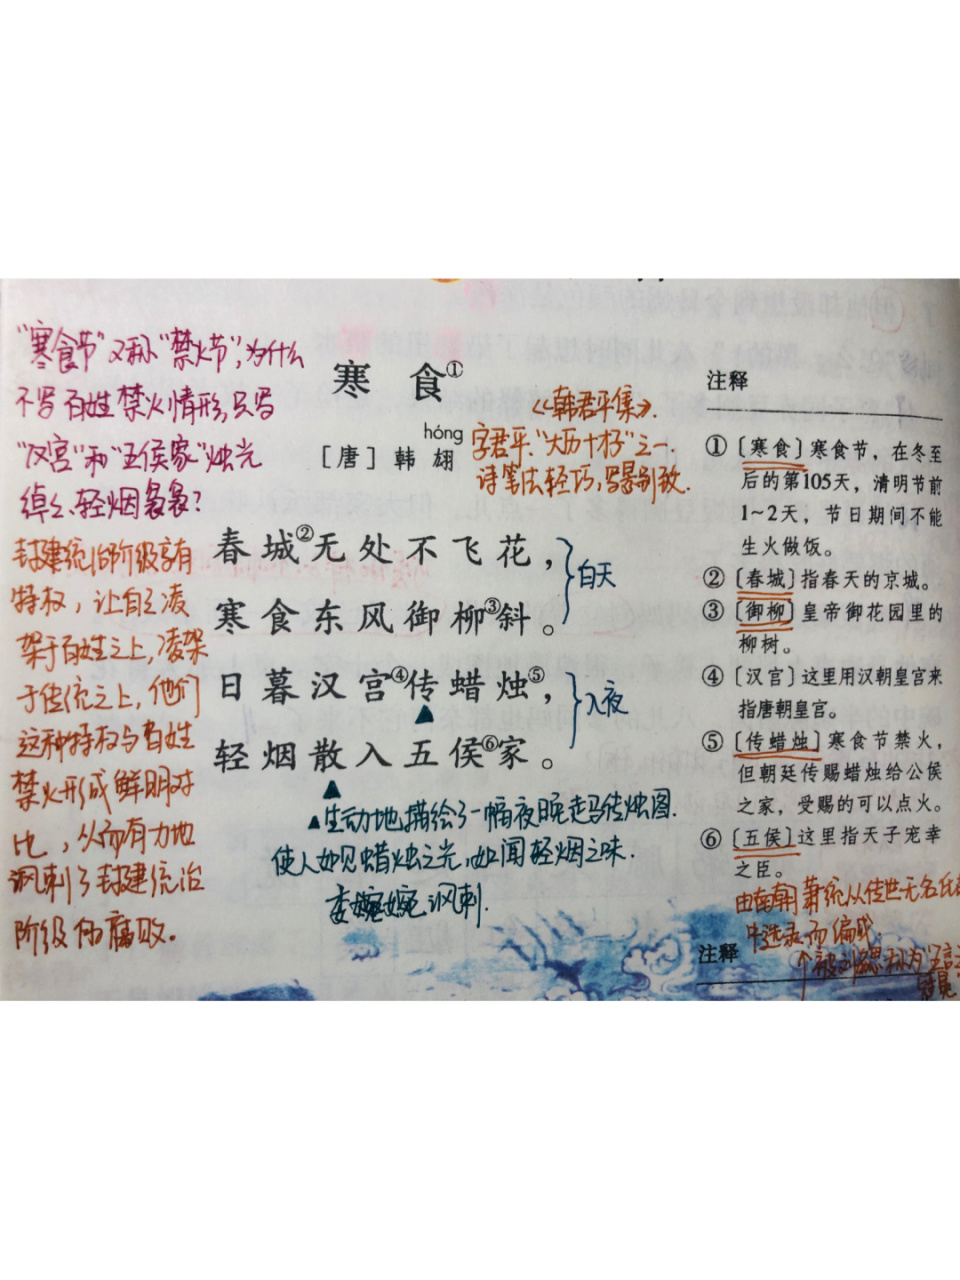 "寒食节"又称"禁火节",为什么
不写百姓禁火情形,只写
"汉宫"和"五侯家"烛光
绰绰、轻烟袅袅?
封建统治阶级享有
特权,让自己凌
架于百姓之上,凌架
于传统之上,他们
这种特权与百姓
禁火形成鲜明对
比,从而有力地
讽刺了封建统治
阶级的腐败.
寒食①
《韩君平集》.
hóng
[唐]韩翃
字君平、"大历十才子"之一
诗笔法轻巧,写景别致.
春城②无处不飞花,
寒食东风御柳③斜。
白天
日暮汉宫④传蜡烛⑤,
轻烟散入五侯⑥家。
入夜
▲生动地描绘了一幅夜晚走马传烛图.
使人如见蜡烛之光,如闻轻烟之味.
委婉 讽刺.
注释
①〔寒食〕寒食节,在冬至
后的第105天,清明节前
1~2天,节日期间不能
生火做饭。
②〔春城〕指春天的京城。
③〔御柳〕皇帝御花园里的
柳树。
④〔汉宫〕这里用汉朝皇宫来
指唐朝皇宫。
⑤〔传蜡烛〕寒食节禁火,
但朝廷传赐蜡烛给公侯
之家,受赐的可以点火。
⑥〔五侯〕这里指天子宠幸
之臣。
由南朝萧统从传世无名氏
中选录而编成
注释
被刘勰称为"五言
冠冕